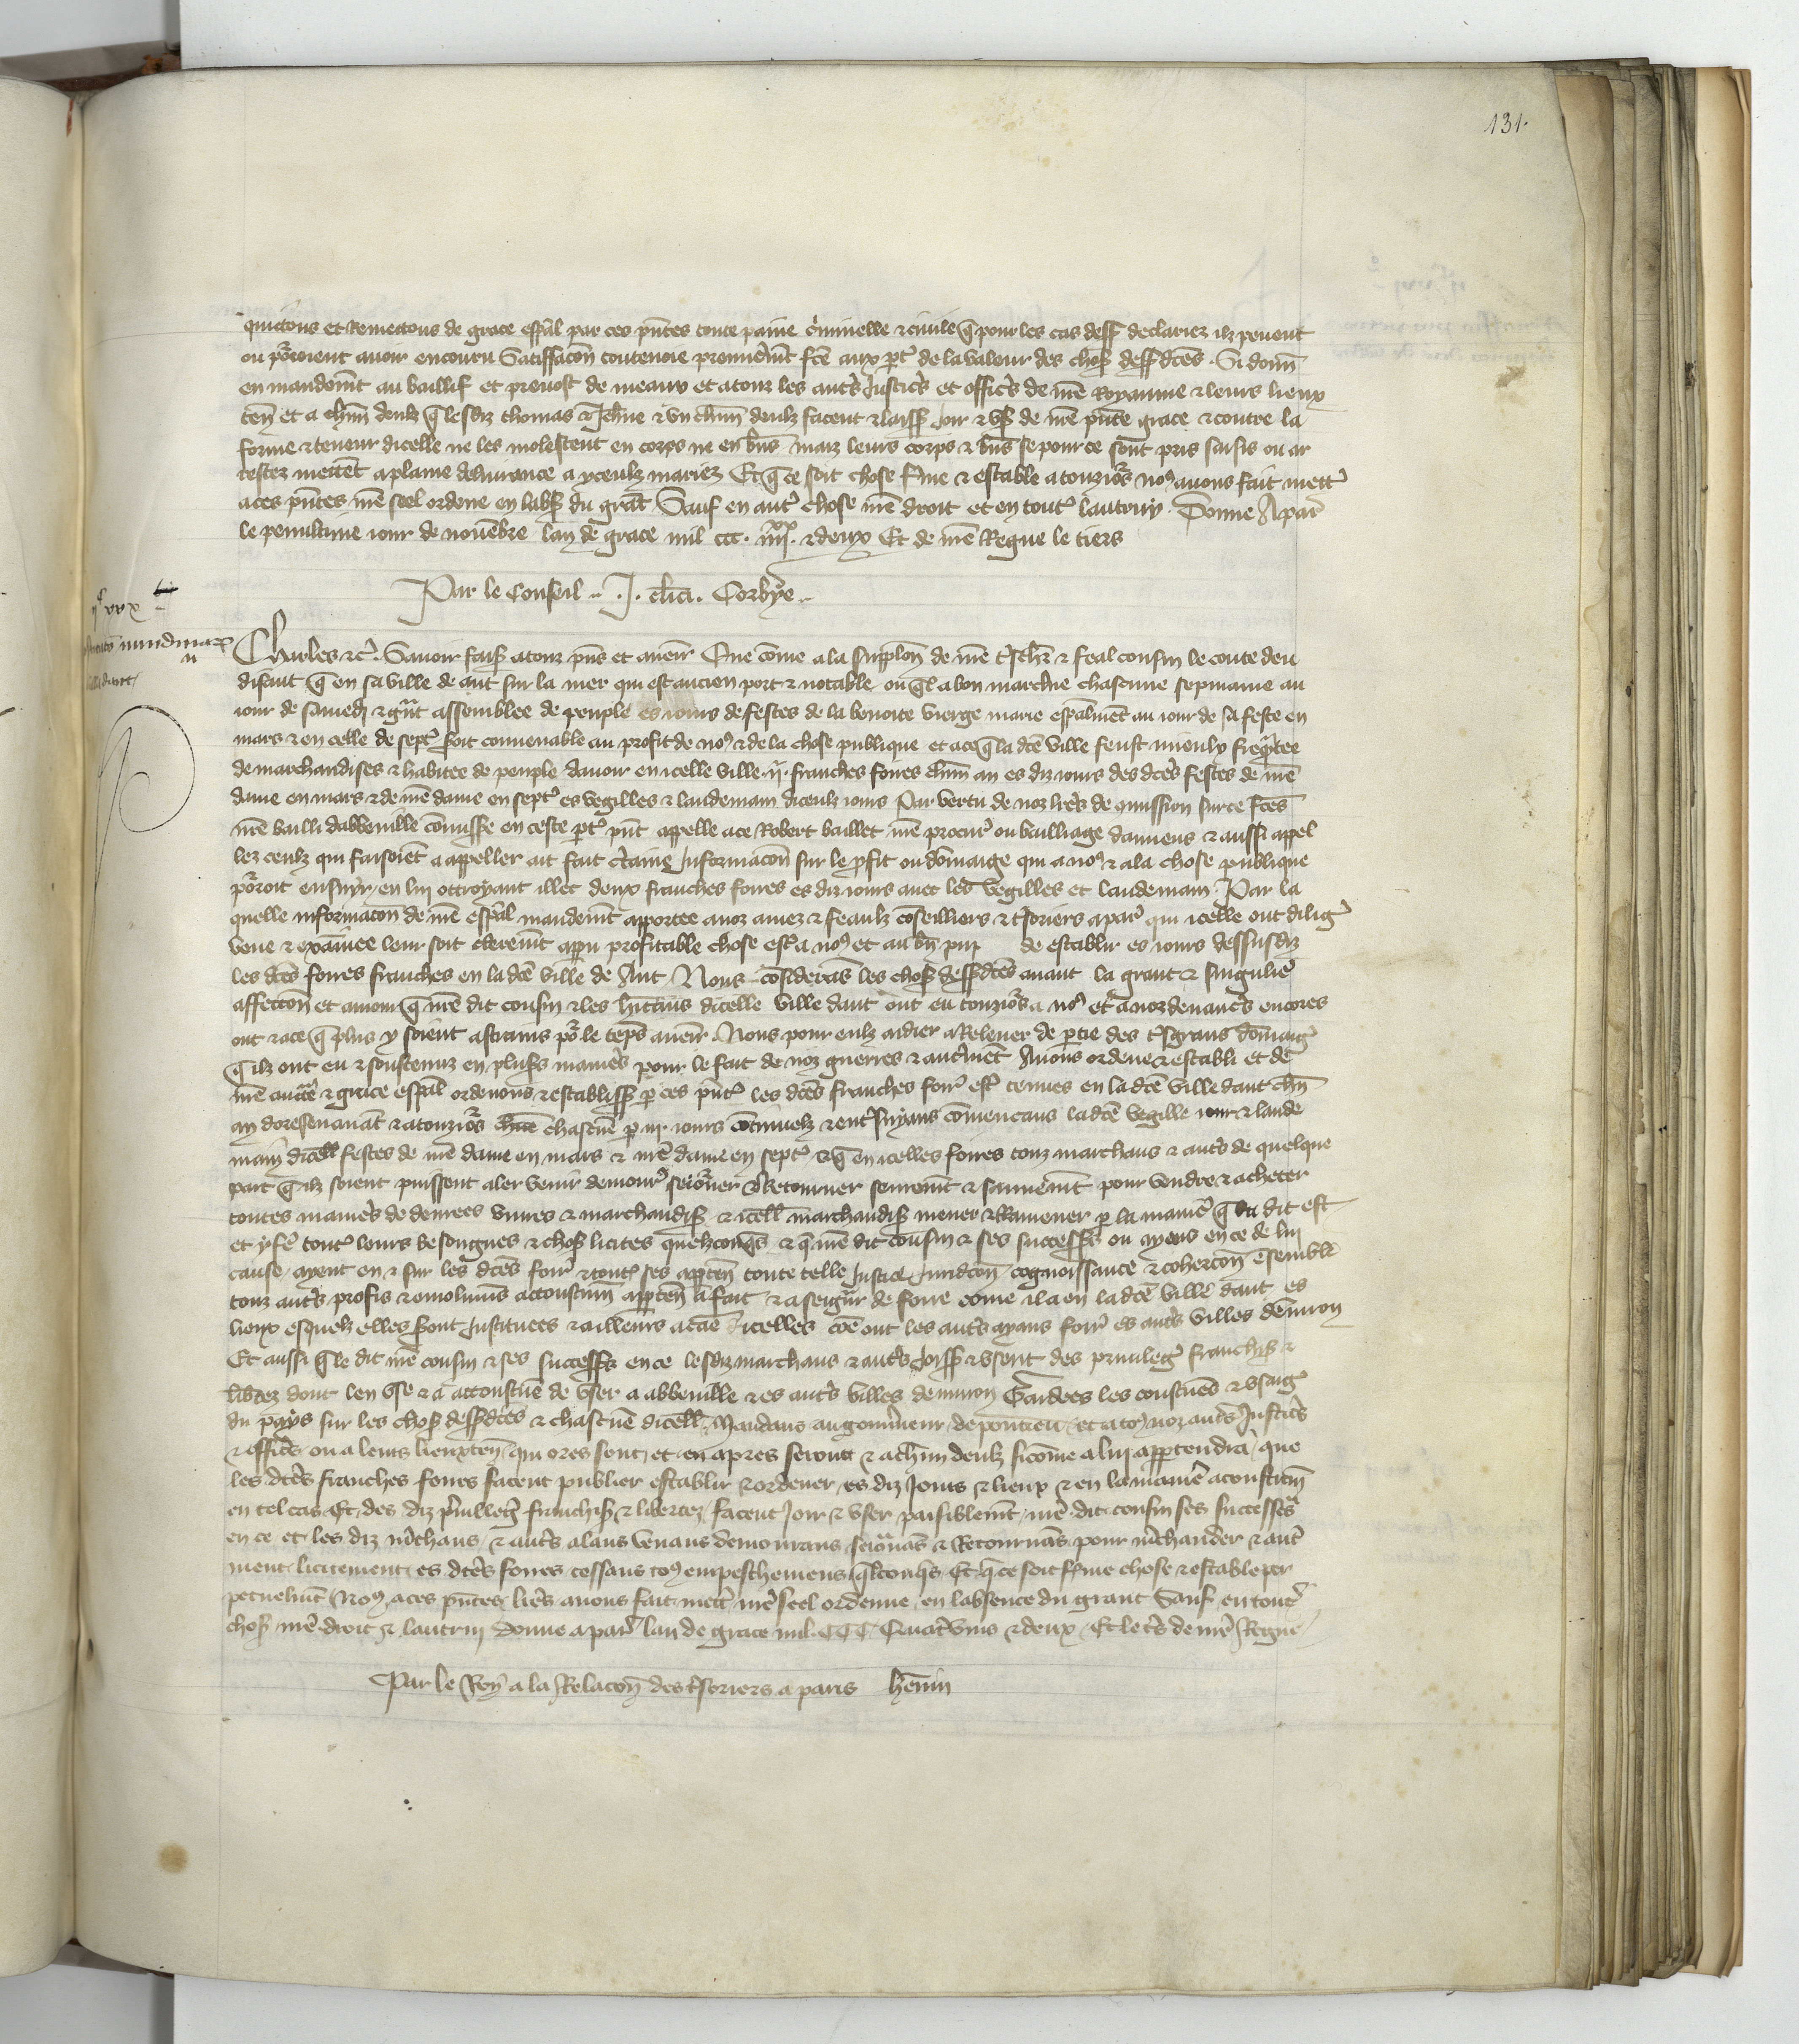 131.
quictons et Remectons de grace esp̃al par ces p̃ntes toute paine c̾iminelle ⁊ ciuile q̃ pour les cas dess̃ declariez ilz peuent
ou po͛roient auoir encouru Satiffac̃on toutenoie premieremẽt fc̃e aux pt͛ de la valeur des chos̃ dess̃dc̃es. Si donñ
en mandemẽt au baillif et preuost de meaux et a touz les aut͛s Justic͛s et offic͛s de nr̃e Royaume ⁊ leurs lieux
teñ et a ch̃un deulz q̃ lesdiz thomas ⁊ Jeh̃ne ⁊ vn ch̃un deulz facent ⁊ laiss̃ Joir ⁊ vs̃ de nr̃e p̃nte grace ⁊ contre la
forme ⁊ teneur dicelle ne les molestent en corps ne en bñs maiz leurs corps ⁊ bñs se pour ce sont pris saisis ou ar
restez mettẽt a plaine deliurance a yceulz mariez Et q̃ ce soit chose f͛me ⁊ estable a touzio͛s no⁹ auons fait mett͛
a ces p̃ntes nr̃e seel ordene en labs̃ du grãt Sauf en aut͛ chose nr̃e droit et en tout͛ lautruy. Donne A par͛
le penultime iour de nouẽbre lan de grace mil ccc. iiijˣˣ. ⁊ deux Et de nr̃e Regne le tiers
Par le Conseil .. J. cl̃ici. Corbye ..
ijᶜ xxx
nundinar͛
Charles ⁊c͛. Sauoir fais̃ a touz p̃ns et auenir Que cõme a la supplc̃on de nr̃e t͛sch͛r ⁊ feal cousin le conte deu
disant q̃ en sa ville de aut sur la mer qui est ancien port ⁊ notable ou q̃l a bon marchie chascune sepmaine au
iour de samedi ⁊ grãt assemblee de peuple es iours de festes de la benoite vierge marie esp̃alment au iour de sa feste en
mars ⁊ en celle de sept͛ soit conuenable au profit de no⁹ ⁊ de la chose publique et a ce q̃ la dc̃e ville feust mieulx freq̃ntee
de marchandises ⁊ habitee de peuple dauoir en icelle ville .ij. franches foires ch̃un an es diz iours des dc̃es festes de nr̃e
dame en mars ⁊ de nr̃e dame en sept͛ es vegilles ⁊ landemain diceulz iours Par vertu de noz lr̃es de cõmission sur ce fc̃es
nr̃e bailli dabbeuille cõmisse en ceste pt͛ p̃nt appelle a ce Robert baillet nr̃e procur͛ ou bailliage damiens ⁊ aussi appel
lez ceulz qui faisoiẽt a appeller ait fait c͛taine Informac̃on sur le p̃fit ou dõmaige qui a no⁹ ⁊ a la chose publique
po͛roit ensuyr en lui ottroyant illec deux franches foires es diz iours auec les vegilles et landemain. Par la
quelle informac̃on de nr̃e esp̃al mandemẽt apportee a noz amez ⁊ feaulz cõseilliers ⁊ t͛soriers a par͛ qui icelle ont dilig͛
veue ⁊ exãinee leur soit clerement apparu profitable chose est͛ a no⁹ et au bñ pu de establir es iours dessusdiz
les dc̃es foires franches en la dc̃e ville de Aut Nous cõsiderãs les chos̃ dess̃dc̃es auant la grant ⁊ singulie͛
affectc̃on et amour q̃ nr̃e dit cousin ⁊ les h̃itans dicelle ville daut ont eu touzio͛s a no⁹ et a noz deuanc͛s encores
ont ⁊ a ce q̃ plus y soient astrains po͛ le tẽps auenir Nous pour eulz aidier a Releuer de p̱tie des t͛sgrans dõmag͛
q̃ ilz ont eu ⁊ soustenuz en plus̃s manie͛s pour le fait de noz guerres ⁊ aut͛mẽt Auons ordene ⁊ establi et de
nr̃e auct͛e ⁊ grace esp̃al ordenons ⁊ establiss̃ p̱ ces p̃nt͛ les dc̃es franches foir͛ est͛ tenues en la dc̃e ville daut ch̃ũ
an doresenauãt ⁊ a touzio͛s chascũe p̱ iij. iours cõtinuelz ⁊ ent͛suyans cõmencans la dc̃e vegille iour ⁊ lande
main dicell͛ festes de nr̃e dame en mars ⁊ nr̃e dame en sept͛ ⁊ q̃ en icelles foires touz marchans ⁊ aut͛s de quelque
part q̃ ilz soient puissent aler venir demour͛ seio͛ner ⁊ Retourner seuremẽt ⁊ sauuemẽt pour vendre ⁊ acheter
toutes manie͛s de denrees viures ⁊ marchandis̃ ⁊ icell͛ marchandis̃ mener ⁊ Ramener p̱ la manie͛ q̃ dit est
et y fe͛ tout͛ leurs besongnes ⁊ chos̃ licites quelzconq̃s ⁊ q̃ nr̃e dit cousin ⁊ ses success̃s ou ayens en ce de lui
cause ayent en ⁊ sur les dc̃es foir͛ ⁊ tout͛ ses appteñ toute telle Justice Juridc̃on cognoissance ⁊ cohercc̃on ẽsemble
touz aut͛s profis ⁊ emolumẽs accoustumẽ appteñ a fait ⁊ a seigũr de foire cõme il a en la dc̃e ville daut es
lieux esquelz elles seront Instituees ⁊ ailleurs a cãe dicelles cõe ont les aut͛s ayans foir͛ es aut͛s villes denuiron
Et aussi q̃ le dit nr̃e cousin ⁊ ses success̃s en ce lesdiz marchans ⁊ aut͛s Joiss̃ ⁊ vsent des priuileg͛ franchis̃ ⁊
lib͛tez dont len vse ⁊ a accoustumẽ de vser a abbeuille ⁊ es aut͛s villes denuiron Gardees les coustumẽs ⁊ vsaig͛
du pays sur les chos̃ dess̃dc̃es ⁊ chascũe dicell͛. Mandans au gouu͛neur de pontieu et a to⁹ noz aut͛s Justic͛s
⁊ offic͛s ou a leurs lieuxteñ qui ores sont et en apres seront ⁊ a ch̃un deulz si cõme a lui appartendra que
les dc̃es franches foires facent publier establir ⁊ ordener es diz Jours ⁊ lieux ⁊ en la manie͛ acoustum̃
en tel cas Et des diz p͛uilleg͛ franchis̃ ⁊ libertez facent Joir ⁊ vser paisiblemẽt nr̃e dit cousin ses successe͛s
en ce et les diz m̃chans ⁊ aut͛s alans venans demourans seio͛nãs ⁊ Retournãs pour m̃chander ⁊ aut͛
ment licitement es dc̃es foires cessans to⁹ empeschemens q̃lconq̃s Et q̃ ce soit f͛me chose ⁊ estable per
petuelmẽt No⁹ a ces p̃ntes lr̃es auons fait mett͛ nr̃e seel ordenne en labsence du grant Sauf en tout͛
chos̃ nr̃e droit ⁊ lautruy Donne a par͛ lan de grace mil CCC Quat͛vins ⁊ deux Et le t͛s de nr̃e Regne
Par le Roy a la Relac̃on des t͛soriers a paris hẽnin